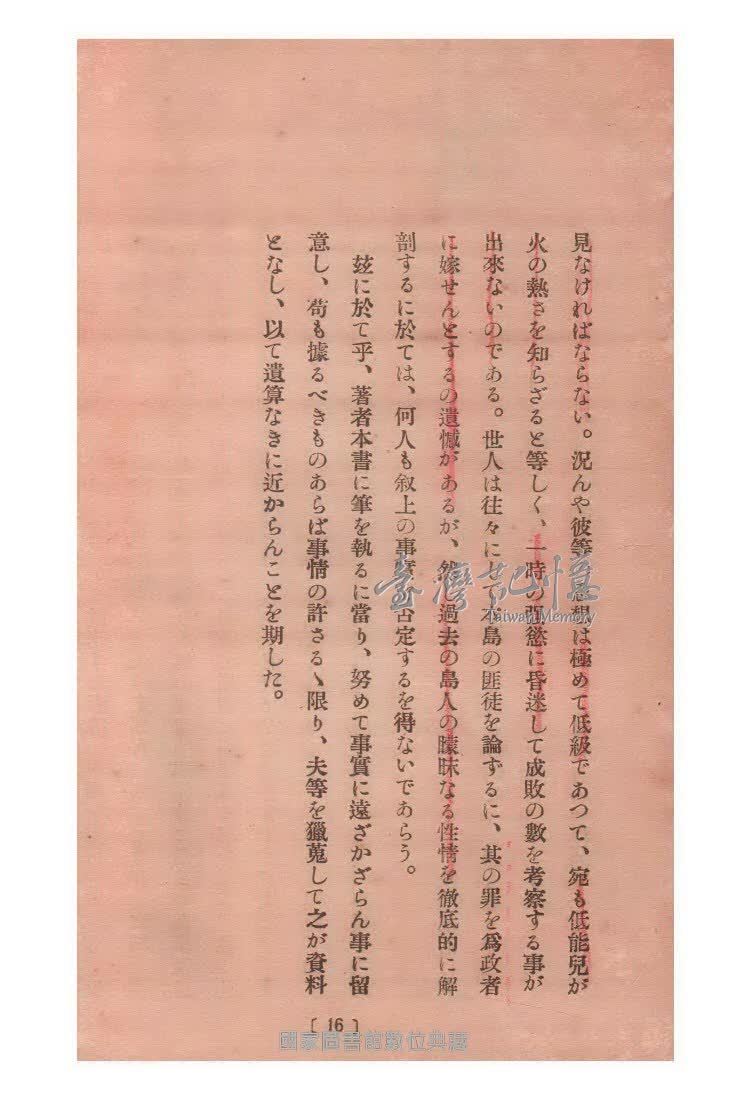 見なければならない。況んや彼等 思想は極めて低級であつて、宛も低能兒が
火の熱さを知らざると等しく、一時の强慾に昏迷して成敗の數を考察する事が
出來ないのである。世人は往々にして本島の匪徒を論ずるに、其の罪を爲政者
に嫁せんとするの遺憾があるが、然し過去の島人の矇昧なる性情を徹底的に解
剖するに於ては、何人も叙上の事實 否定するを得ないであらう。
玆に於て乎、著者本書に筆を執るに當り、努めて事實に遠ざかざらん事に留
意し、苟も據るべきものあらば事情の許さるゝ限り、夫等を獵蒐して之が資料
となし、以て遺算なきに近からんことを期した。
臺灣記憶
Taiwan Memory
[ 16 ]
國家圖書館數位典藏